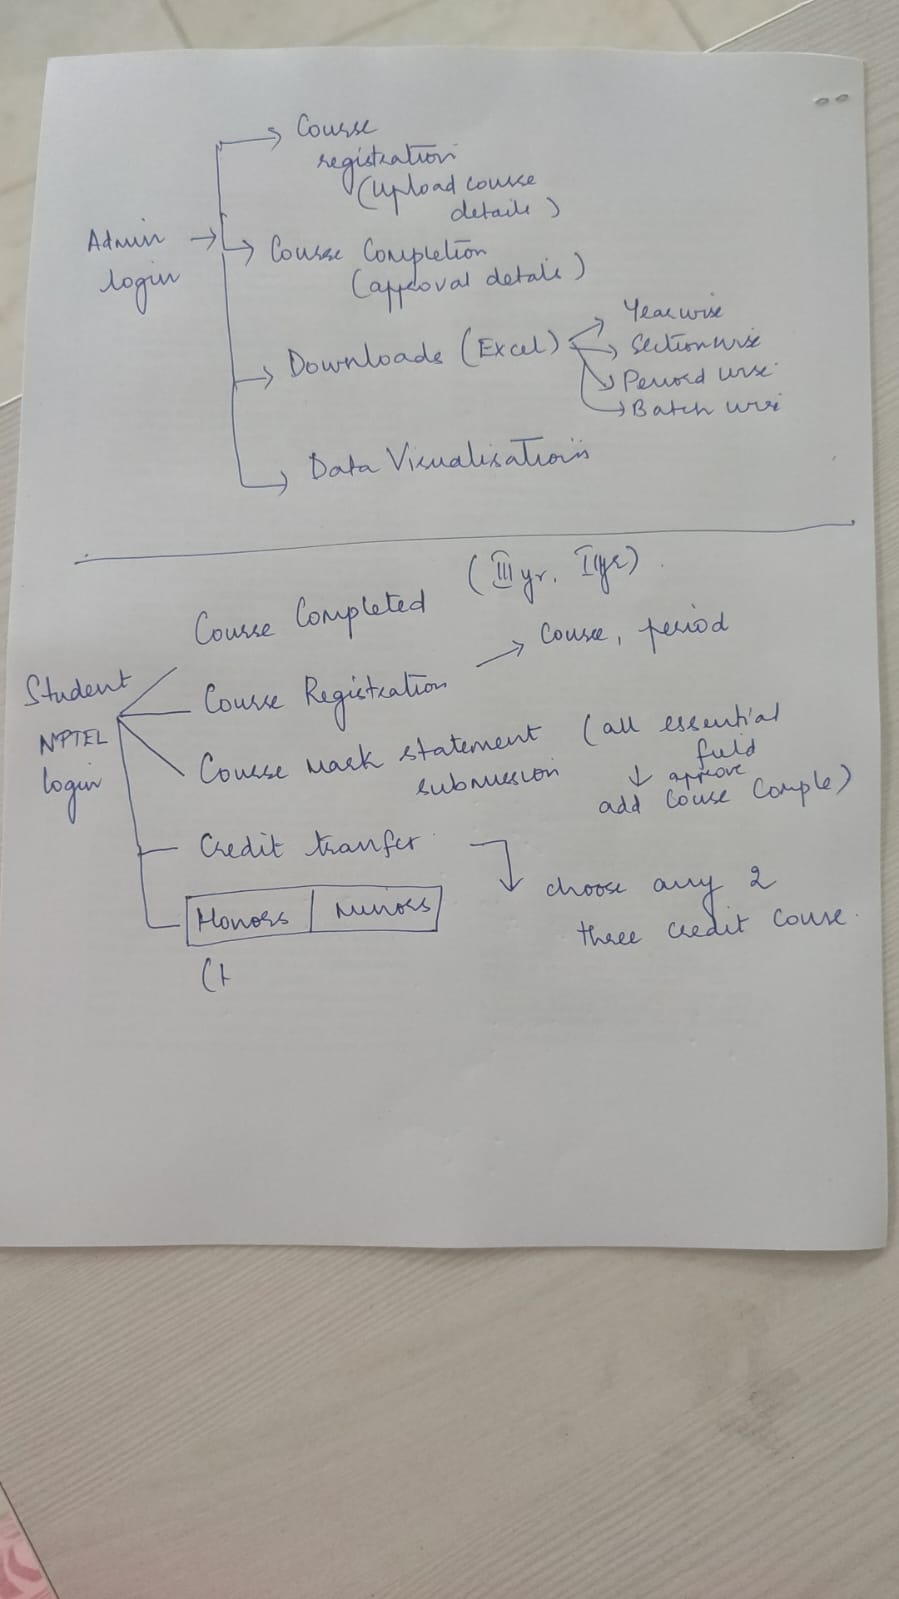 Course
registration
(upload course
details)
Admin
login
Course Completion
(approval details)
Downloads (Excel)
Yearwise
Sectionwise
Period wise
Batch wise
Data Visualisations
Course Completed (III yr, I yr)
Student
NPTEL
login
Course Registration
Course, period
Course mark statement
submission
(all essential
field
approve
add Couse Comple)
Credit tranfer
choose any 2
three credit course.
Honors Minors
(H